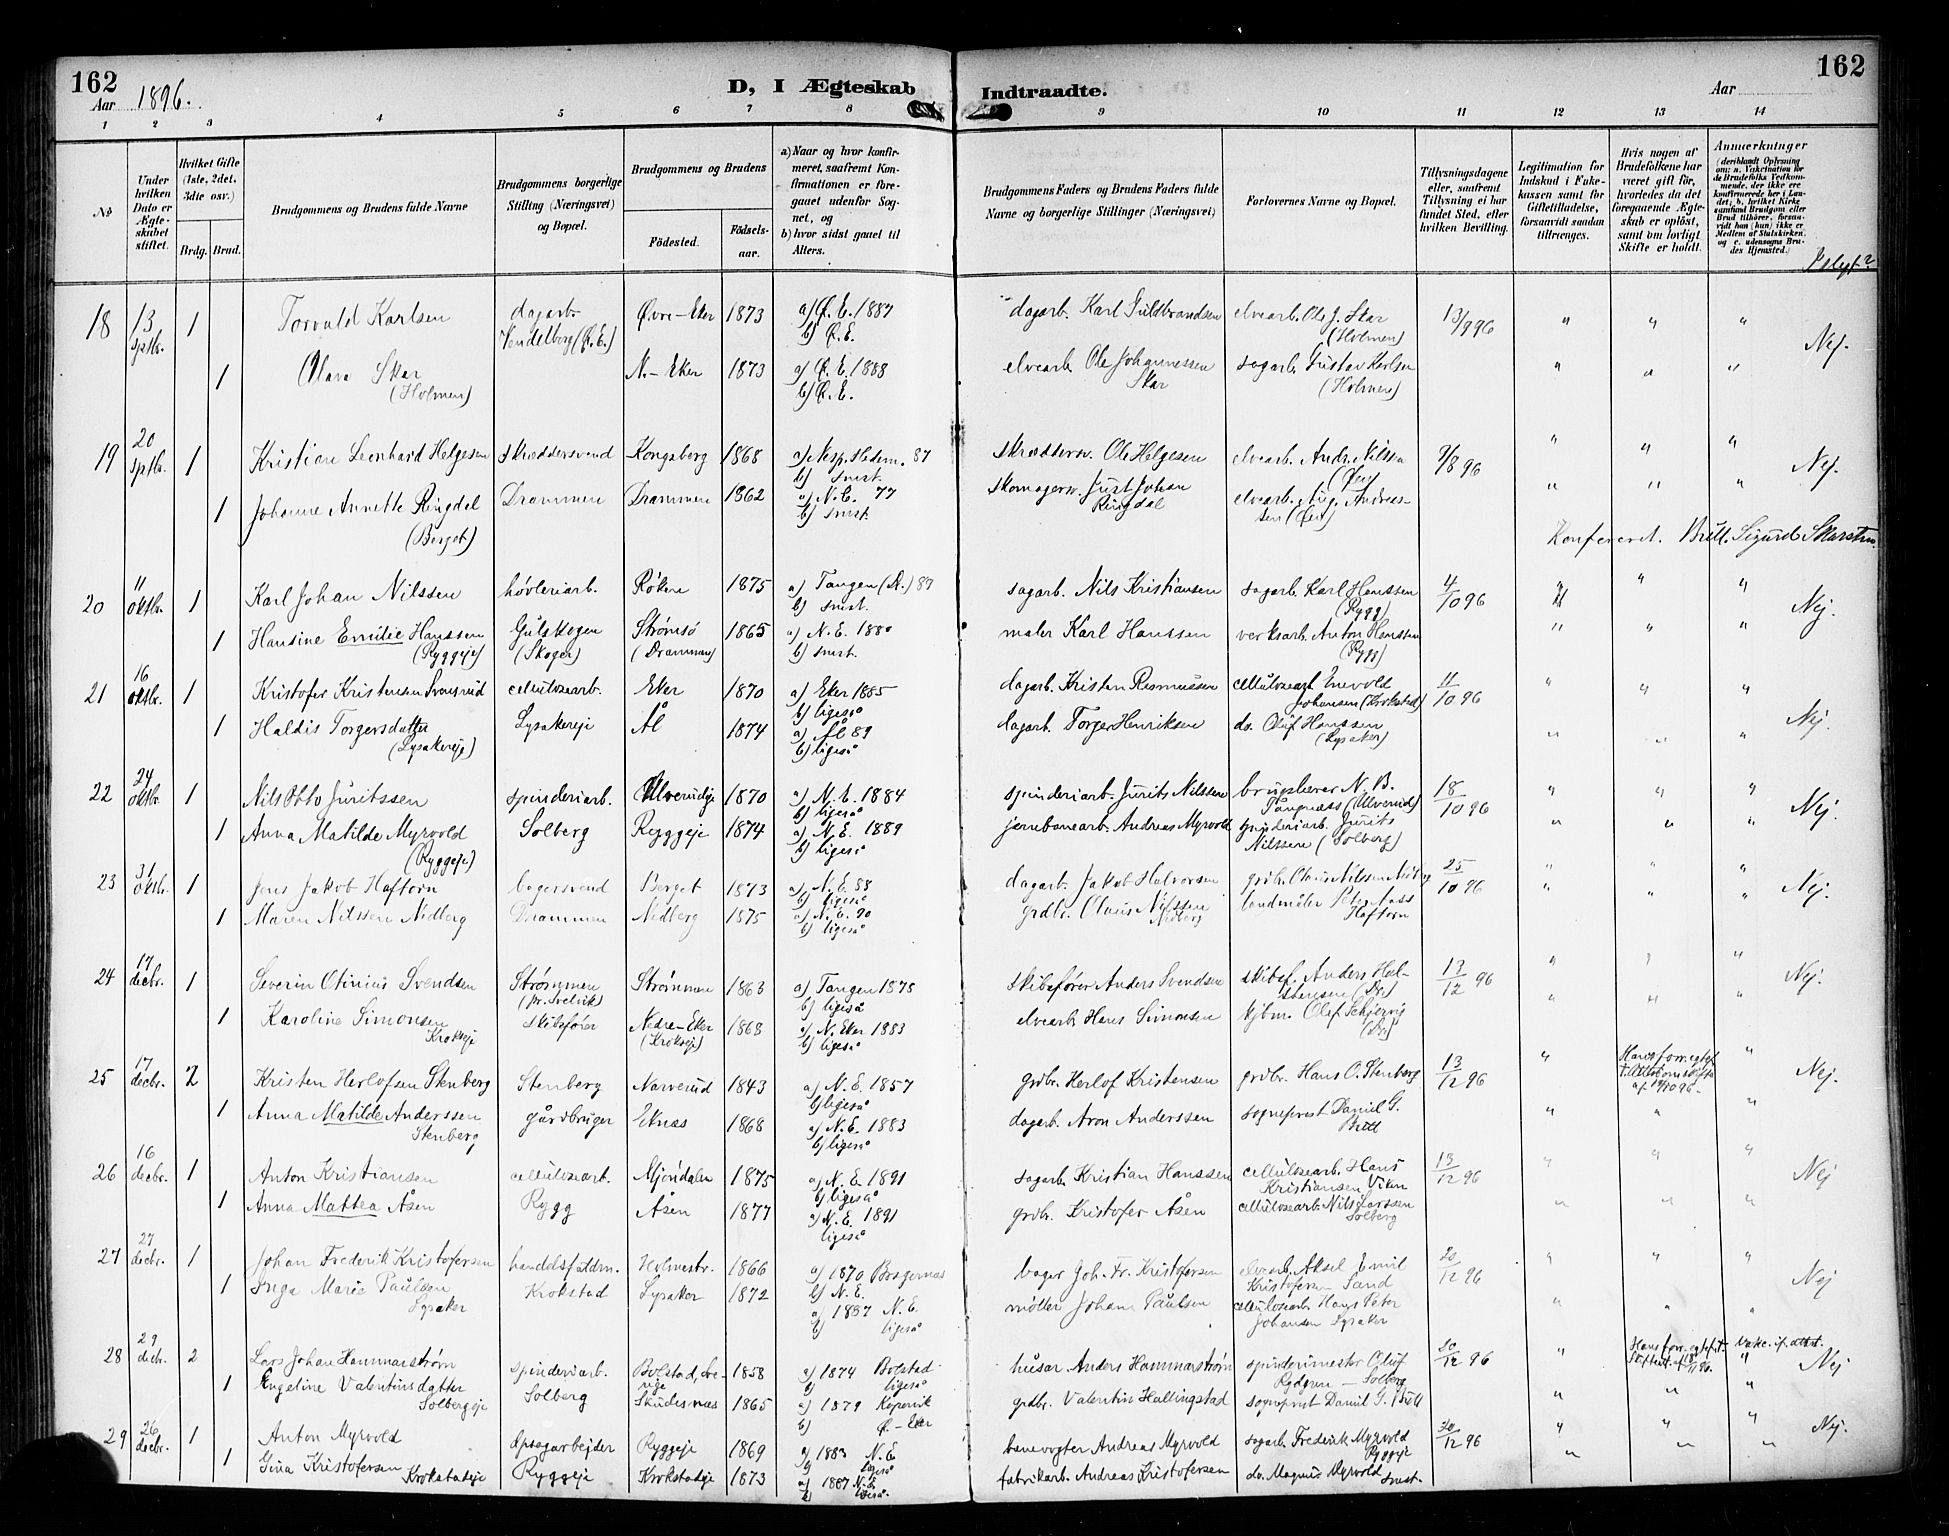 162
Aar 1896.
D, I Ægteskab Indtraadte.
Aar
162
1 2 3 4 5 6 7 8 9 10 11 12 13 14
No
Under hvilken Dato er Ægteskabet stiftet.
Hvilket Gifte (1ste, 2det, 3die osv.)
Brdg. Brud.
Brudgommens og Brudens fulde Navne
Brudgommens borgerlige Stilling (Næringsvei) og Bopæl.
Brudgommens og Brudens
Fødested.
Fødselsaar.
a) Naar og hvor konfirmeret, saafremt Konfirmationen er foregaaet udenfor Sognet, og
b) hvor sidst gaaet til Alters.
Brudgommens Faders og Brudens Faders fulde Navne og borgerlige Stillinger (Næringsvei)
Forlovernes Navne og Bopæl.
Tillysningsdagene eller, saafremt Tillysning ei har fundet Sted, efter hvilken Bevilling.
Legitimation for Indskud i Enkekassen samt for Giftetilladelse, forsaavidt saadan tiltrænges.
Hvis nogen af Brudefolkene har været gift før, hvorledes da det foregaaende Ægteskab er opløst, samt om lovligt Skifte er holdt.
Anmærkninger
18 13 sptbr. 1 Torvald Karlsen dagarb. Øvre-Eker 1873 a) Ø.E. 1887 dagarb. Karl Guldbrandsen elvearb. Ole J. Skar 13/9 96 " " "
Vendelborg (Ø.E.) b) Ø.E. (Holmen) Nej.
1 Olava Skar N.-Eker 1873 a) Ø.E. 1888 elvearb. Ole Johannessen sagarb. Gustav Karlsen " " "
(Holmen) b) Ø.E. Skar (Holmen)
19 20 sptbr. 1 Kristian Leonhard Helgesen skræddersvend Kongsberg 1868 87 skræddersv. Ole Helgesen elvearb. Andr. Nilssen 9/8 96 " " " Nej.
b) smst.
1 Johanne Annette Ringdal Drammen Drammen 1862 a) N.E. 77 skomagersv. Just Johan elvearb. Aug. Andreas- " " "
(Berget) b) smst. Ringdal sen
Konfereret. Britt. Sigurd
20 11 oktbr. 1 Karl Johan Nilssen høvleriarb. Røken 1875 a) Tangen (D.) 87 sagarb. Nils Kristiansen sagarb. Karl Hanssen 4/10 96 " " " Nej.
b) smst. (Rygg)
1 Hansine Emilie Hanssen Gulskogen Strømsø 1865 a) N.E. 1880 maler Karl Hanssen verksarb. Anton Hanssen " " "
(Ryggeje) (Skoger) (Drammen) b) smst. (Rygg)
21 16 oktbr. 1 Kristofer Kristensen Svensrud cellulosearb. Eker 1870 a) Eker 1885 dagarb. Kristen Rasmussen cellulosearb. Enevold 11/10 96 " " "
b) ligeså Johansen (Krokstad) Nej.
1 Haldis Torgersdatter Lysakereje Ål 1874 a) Ål 89 dagarb. Torger Henriksen do. Oluf Hanssen " " "
(Lysakereje) b) ligeså (Lysaker)
22 24 oktbr. 1 Nils Otto Juritssen spinderiarb. Ulverudeje 1870 a) N.E. 1884 spinderiarb. Jurits Nilssen N. B. 18/10 96 " " "
b) ligeså (Ulverud) Nej.
1 Anna Matilde Myrvold Solberg Ryggeje 1874 a) N.E. 1889 jernebanearb. Andreas Myrvold spinderiarb. Jurits " " "
(Ryggeje) b) ligeså Nilssen (Solberg)
23 31 oktbr. 1 Jens Jakob Haftorn bagersvend Berget 1873 a) N.E. 88 dagarb. Jakob Halvorsen grdbr. Olaus Nilssen Nedberg 25/10 96 " " " Nej.
b) ligeså
1 Maren Nilssen Nedberg Drammen Nedberg 1875 a) N.E. 90 grdbr. Olaus Nilssen " " "
b) ligeså Nedberg Haftorn
24 17 decbr. 1 Severin Otinius Svendsen Strømmen Strømmen 1863 a) Tangen 1878 skibsfører Anders Svendsen skibsf. Anders Hal- 13/12 96 " " " Nej.
(pr. Svelvik) b) ligeså (Dr.)
1 Karoline Simonsen skibsfører Nedre-Eker 1868 a) N. Eker 1883 elvearb. Hans Simonsen kjbm. Olaf Schjervig " " "
Krokseje (Krokseje) b) ligeså (Dr.)
25 17 decbr. 2 Kristen Herlofsen Stenberg Stenberg Narverud 1843 a) N.E. 1857 grdbr. Herlof Kristensen grdbr. Hans O. Stenberg 13/12 96 " Hans forr. egtef. " Nej.
b) ligeså
1 Anna Matilde Anderssen gårdbruger Eknæs 1868 a) N.E. 1883 dagarb. Aron Anderssen sogneprest Daniel G. " " "
Stenberg b) ligeså Britt
26 16 decbr. 1 Anton Kristiansen cellulosearb. Mjøndalen 1875 a) N.E. 1891 sagarb. Kristian Hanssen cellulosearb. Hans 13/12 96 " " " Nej
b) ligeså Kristiansen Viken
1 Anna Mattea Åsen Rygg Åsen 1877 a) N.E. 1891 grdbr. Kristofer Åsen cellulosearb. Nils Larssen " " "
ligeså Solberg
27 27 decbr. 1 Johan Frederik Kristofersen handelsfuldm. Holmestr. 1866 a) 1870 Bragernæs bager Joh. Fr. Kristofersen elvearb. Aksel Emil 20/12 96 " " "
b) N.E. Kristofersen Sand Nej
1 Inga Marie Paulsen Krokstad Lysaker 1872 a) 1887 N.E. møller Johan Paulsen cellulosearb. Hans Peter " " "
Lysaker b) ligeså Johansen Lysaker
28 29 decbr. 2 Lars Johan Hammarstrøm spinderiarb. Bolstad, Sve- 1858 a) 1874 Bolstad husar Anders Hammarstrøm spinderimester Oluf 20/12 96 " Hans forr. egtef. Vakc. if. attest. Nej
rige b) ligeså Rydgren - Solberg
1 Engeline Valentinsdatter Solberg Skudesnæs 1865 a) 1879 Kopervik grdbr. Valentin Hallingstad sogneprest Daniel G. Britt " " "
Solbergeje b) Ø-Eker
29 26 decbr. 1 Anton Myrvold dpsagarbejder Ryggeje 1869 a) 1883 N.E. banevogter Andreas Myrvold sagarb. Frederik Myrvold 20/12 96 " " " Nej.
b) ligeså Ryggeje
1 Gina Kristofersen Ryggeje Krokstadeje 1873 a) 1887 N.E. fabrikarb. Andreas Kristofersen do. Magnus Myrvold smst. " " "
Krokstadeje b) ligeså